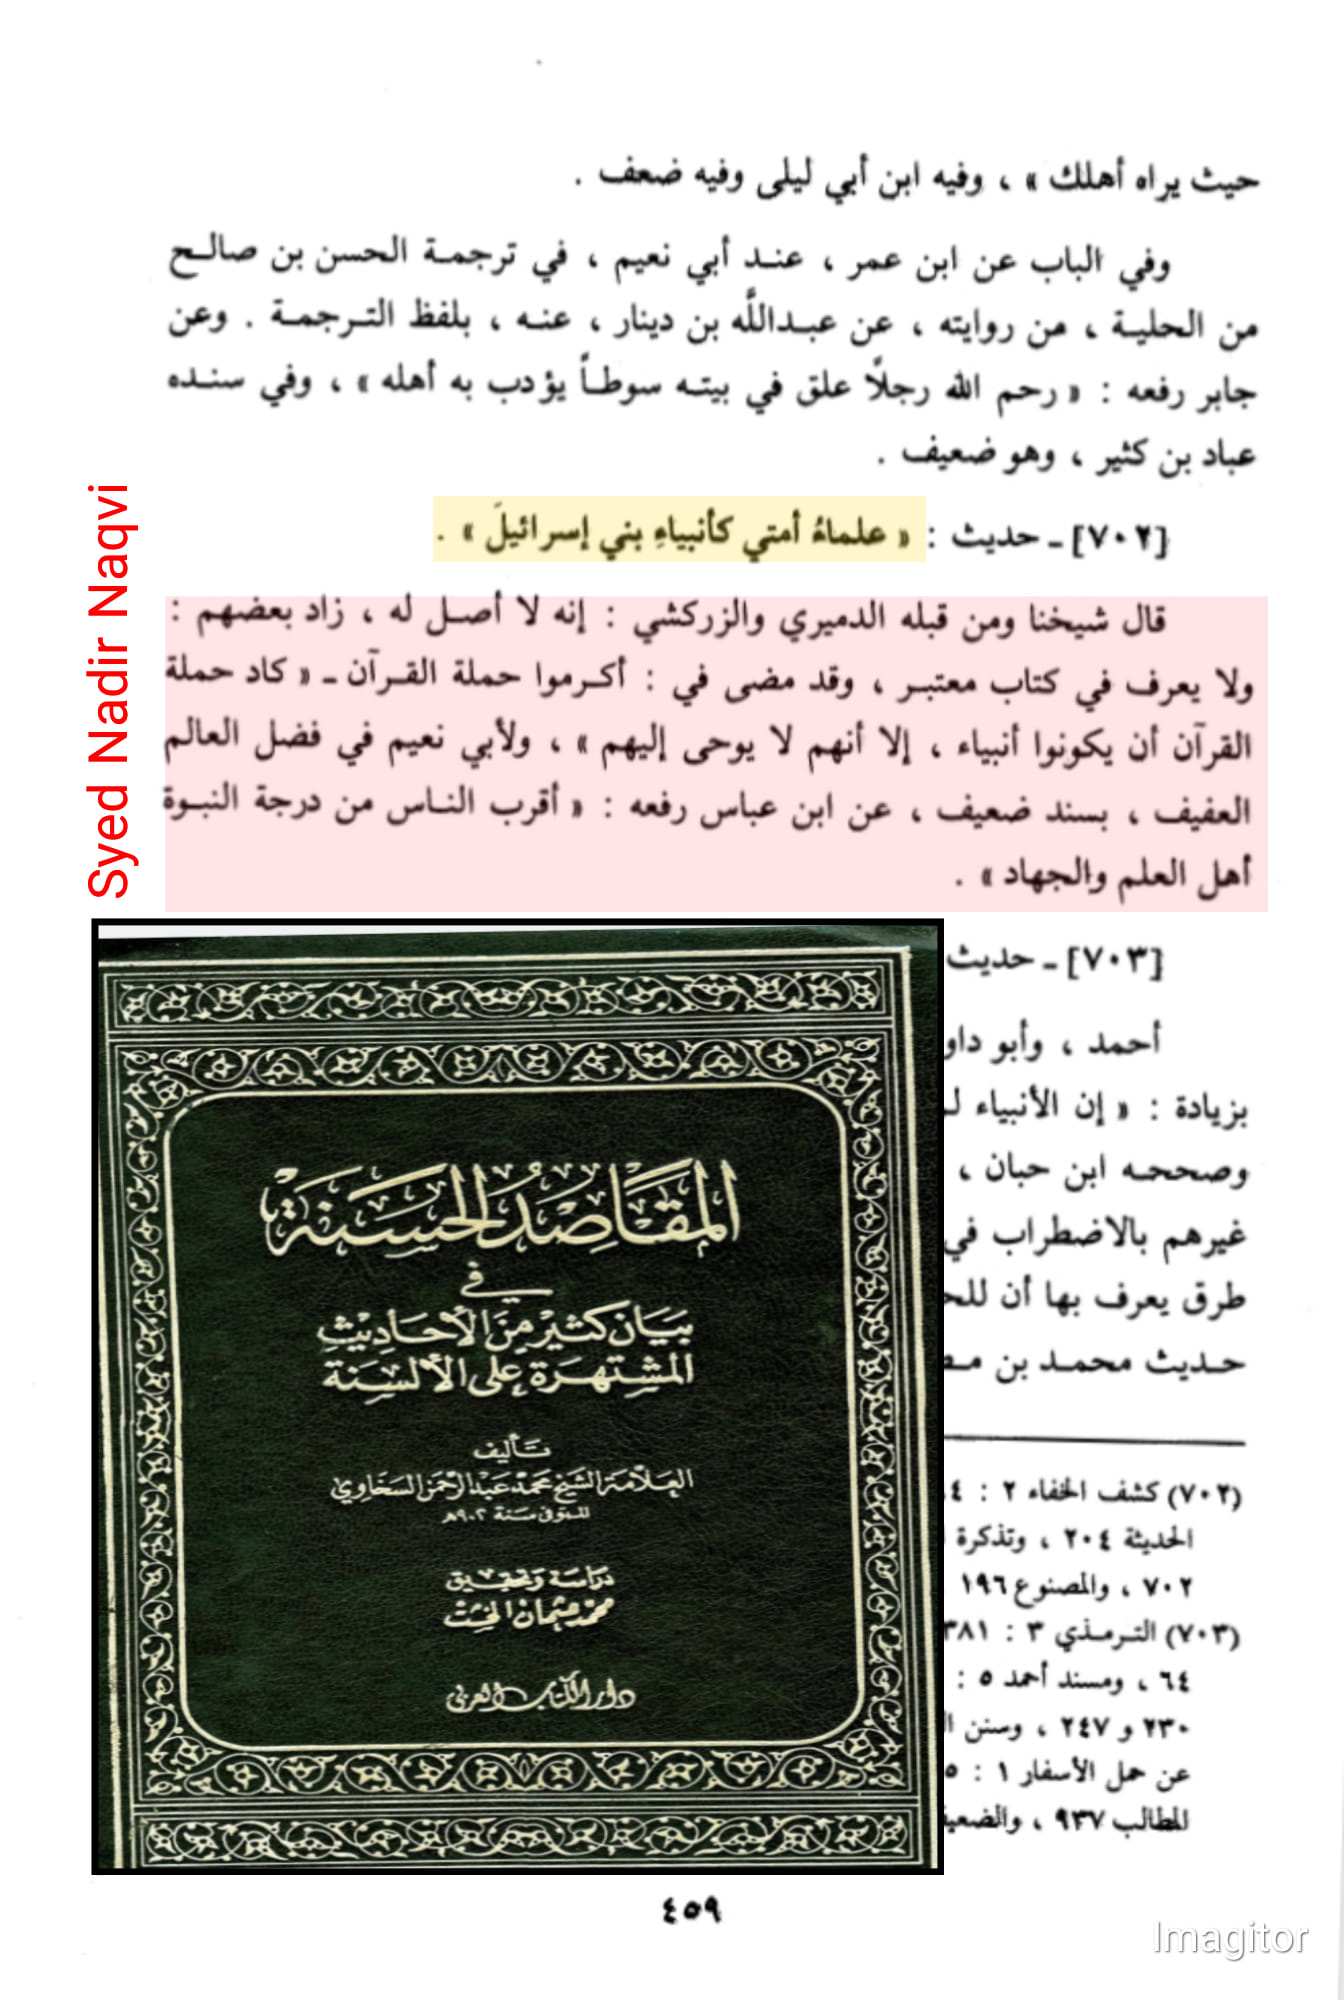 حيث يراه أهلك » ، وفيه ابن أبي ليلى وفيه ضعف .
وفي الباب عن ابن عمر ، عنـد أبي نعيم ، في ترجمـة الحسن بن صالـح
من الحليـة ، من روايته ، عن عبـداللَّه بن دينار ، عنـه ، بلفظ التـرجمـة . وعن
جابر رفعه : « رحم الله رجلًا علق في بيتـه سوطـاً يؤدب به أهله » ، وفي سنـده
عباد بن كثير ، وهو ضعيف .
[٧٠٢] ـ حديث : « علماءُ أمتي كأنبياءِ بني إسرائيلَ » .
قال شيخنا ومن قبله الدميري والزركشي : إنه لا أصـل له ، زاد بعضهم :
ولا يعرف في كتاب معتبـر ، وقد مضى في : أكـرموا حملة القـرآن ـ « كاد حملة
القرآن أن يكونوا أنبياء ، إلا أنهم لا يوحى إليهم » ، ولأبي نعيم في فضل العالم
العفيف ، بسند ضعيف ، عن ابن عباس رفعه : « أقرب النـاس من درجة النبـوة
أهل العلم والجهاد » .
Syed Nadir Naqvi
[٧٠٣] ـ حديث
أحمد ، وأبو داو
بزيادة : « إن الأنبياء لـ
وصححـه ابن حبان ،
غيرهم بالاضطراب في
طرق يعرف بها أن للح
حـديث محمـد بن مـص
(٧٠٢) كشف الخفاء ٢ :
الحديثة ٢٠٤ ، وتذكرة
٧٠٢ ، والمصنوع ١٩٦
(٧٠٣) التـرمـذي ٣ : ٣٨١
٦٤ ، ومسند أحمد ٥ :
٢٣٠ و ٢٤٧ ، وسنن ا
عن حمل الأسفار ١ : ٥
المطالب ٩٣٧ ، والضعيف
المقاصد الحسنة
في
بيان كثير من الأحاديث
المشتهرة على الألسنة
تأليف
العلامة الشيخ محمد عبد الرحمن السخاوي
المتوفى سنة ٩٠٢هـ
دراسة وتحقيق
محمد عثمان الخشت
دار الكتاب العربي
٤٥٩
Imagitor